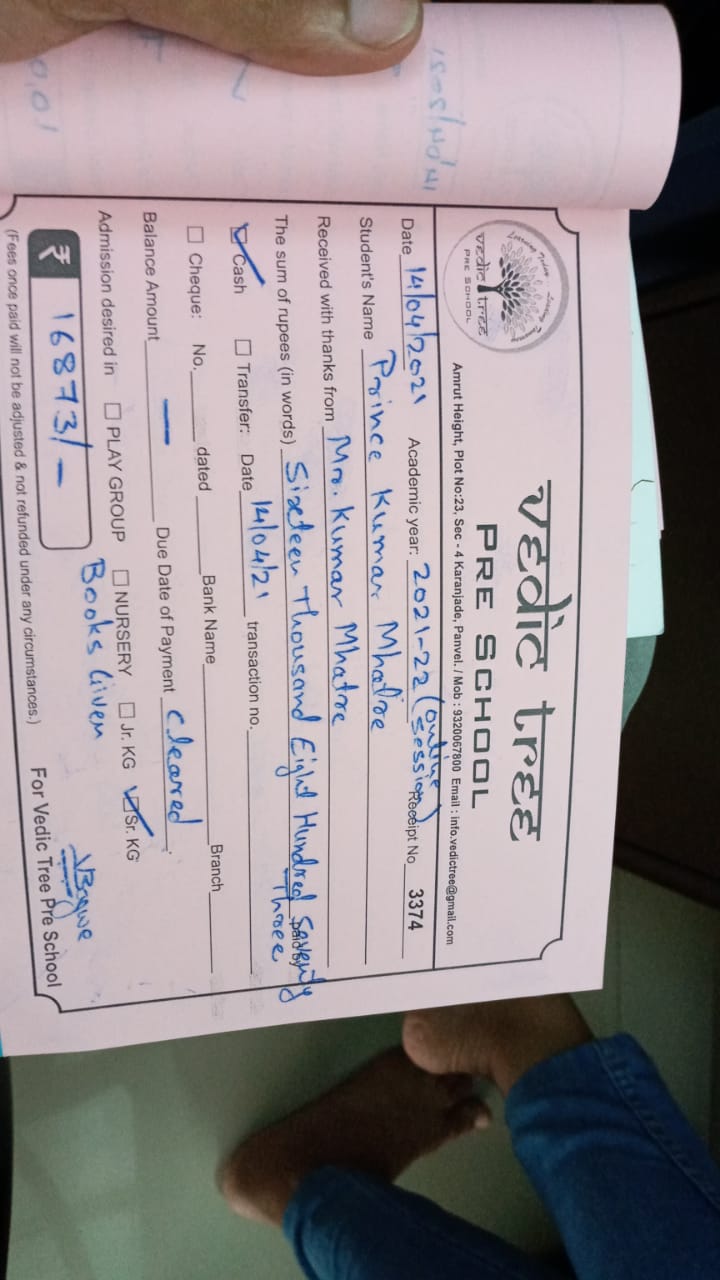 Learning Today Leading Tomorrow
vedic tree
PRE SCHOOL
vedic tree
PRE SCHOOL
Amrut Height, Plot No:23, Sec - 4 Karanjade, Panvel. / Mob : 9320067800 Email : info.vedictree@gmail.com
Date 14/04/2021 Academic year: 2021-22 (Online Session) Receipt No 3374
Student's Name Prince Kumar Mhatre
Received with thanks from Mr. Kumar Mhatre
The sum of rupees (in words) Sixteen Thousand Eight Hundred Seventy Three paid by
Cash Transfer: Date 14/04/21 transaction no.
Cheque: No. dated Bank Name Branch
Balance Amount — Due Date of Payment Cleared.
Admission desired in PLAY GROUP NURSERY Jr. KG Sr. KG
₹ 16873/- Books Given
(Fees once paid will not be adjusted & not refunded under any circumstances.) For Vedic Tree Pre School